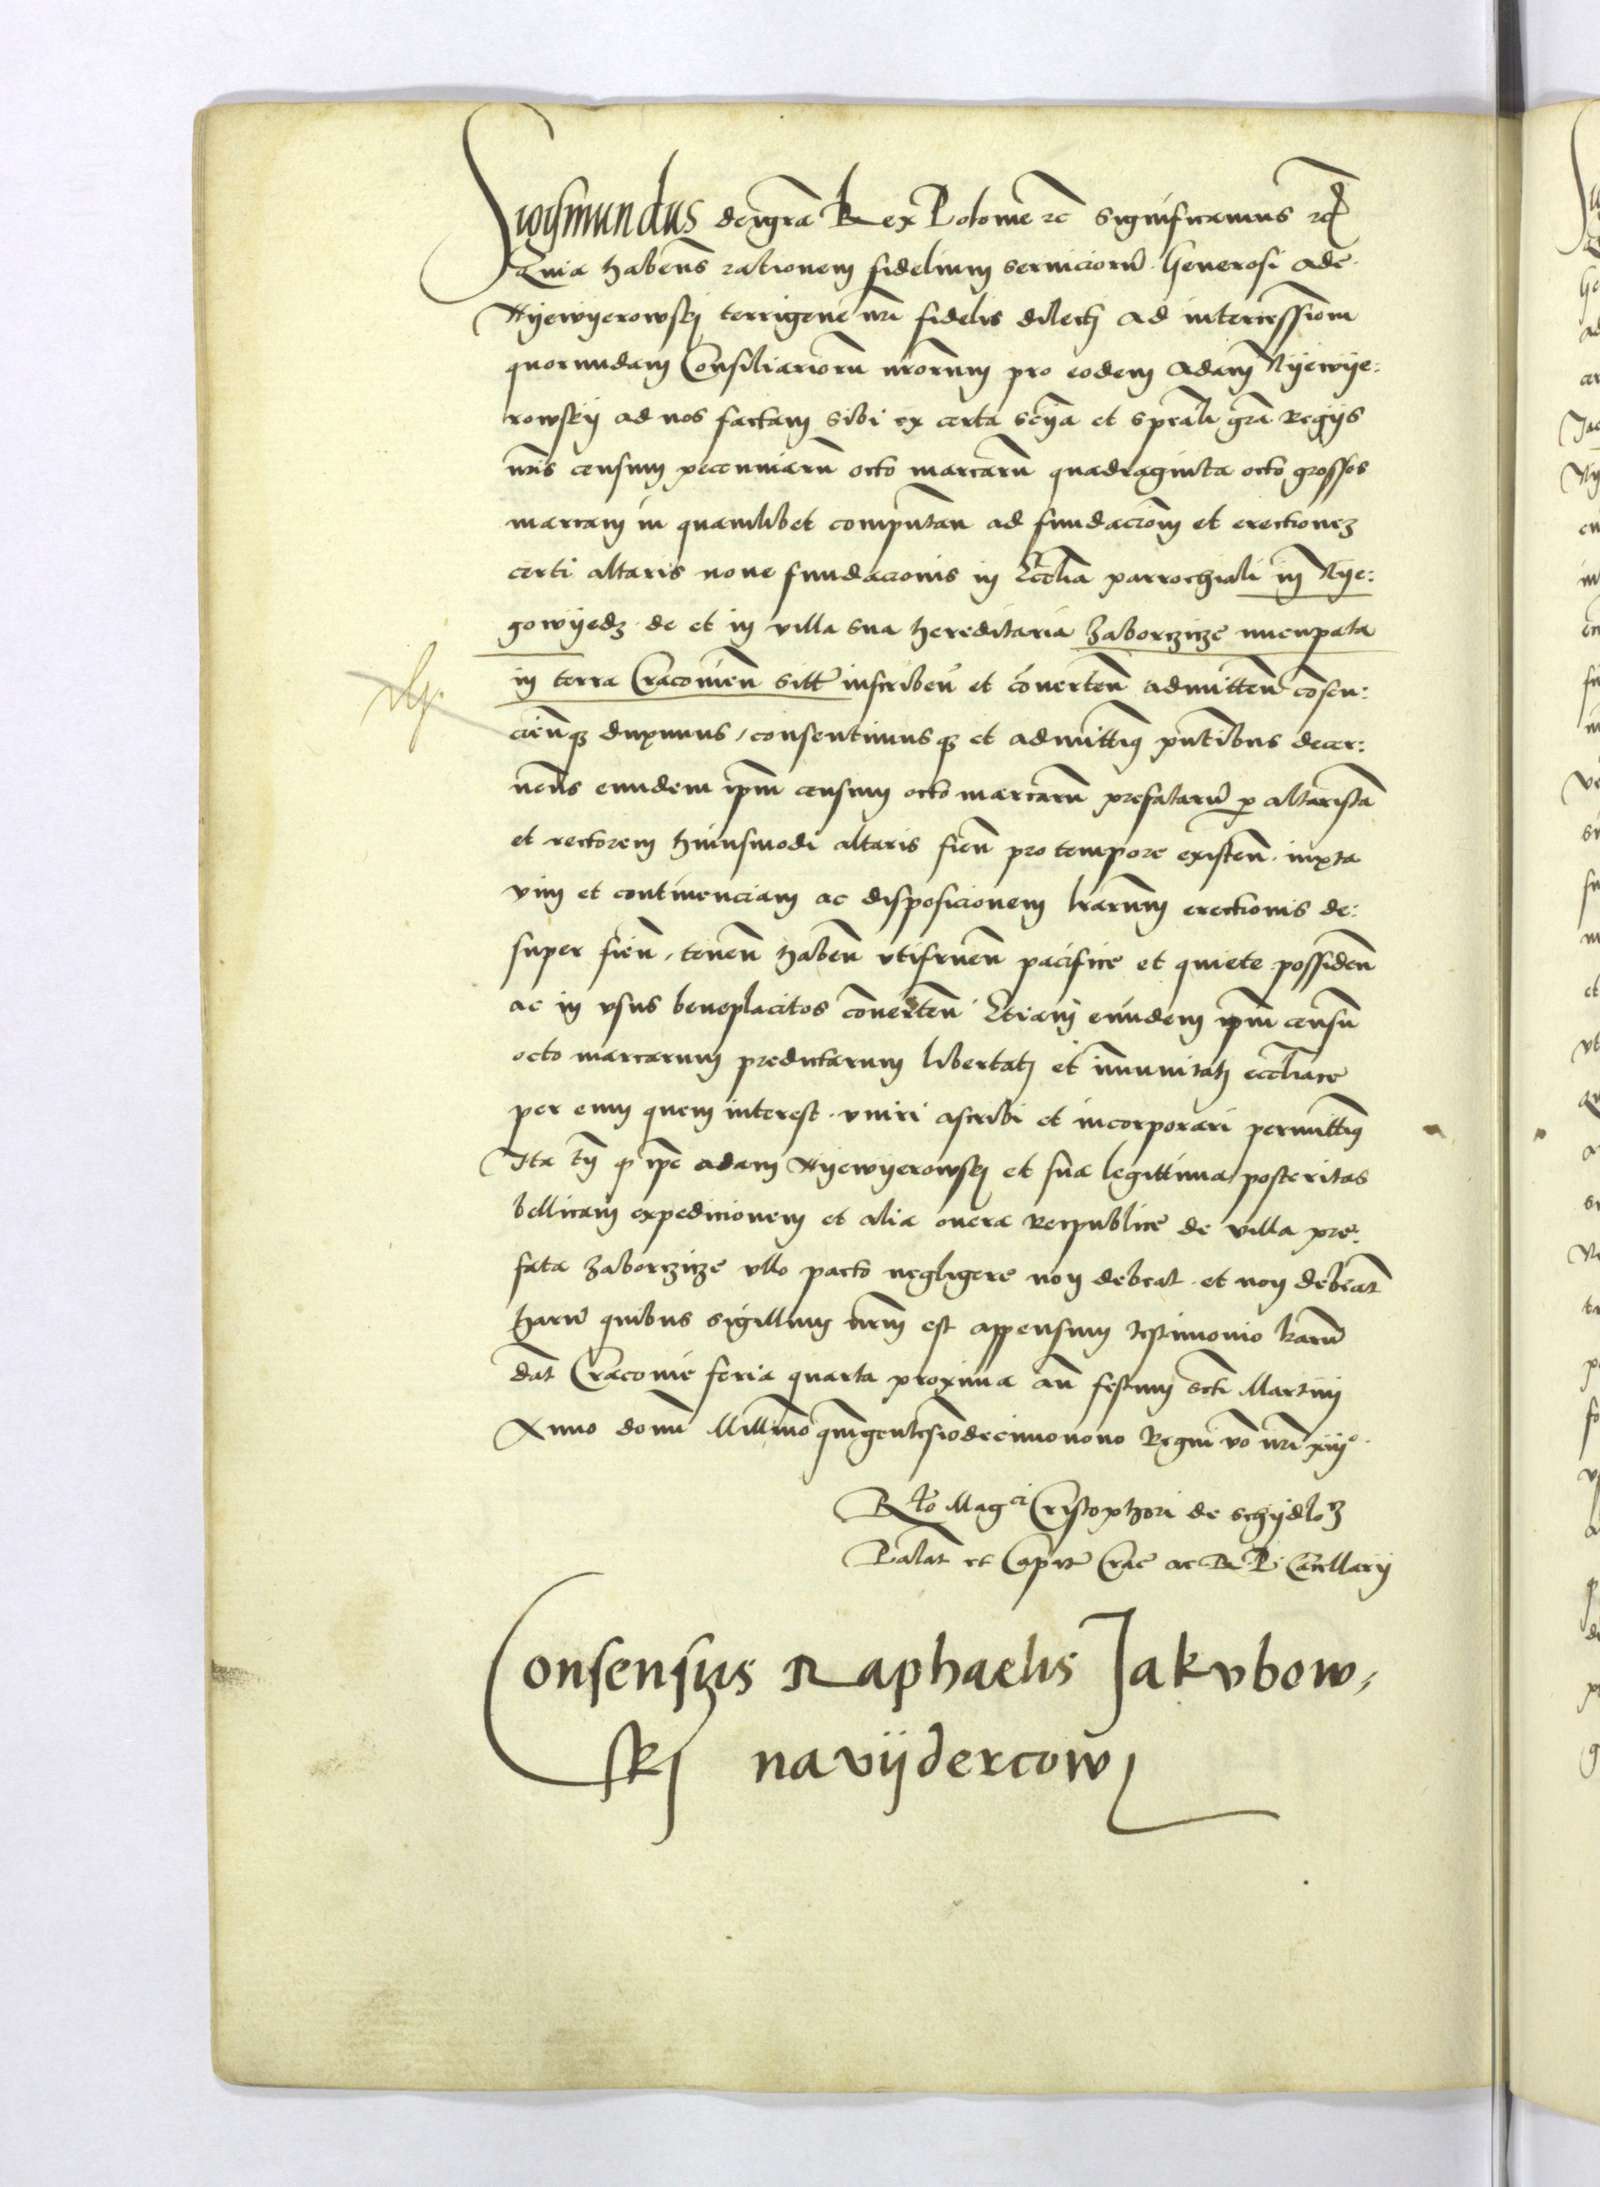 Sigismundus dei grã Rex Poloniẽ zc̃ Significamus zc̃
Quia habenš rationem fidelium serviciorũ Generosi Ade
Nyewyerowskj terrigene nr̃i fidelis dilecti ad intercessionẽ
quorundam Consiliariorũ nr̃orum pro eodem Adam̃ Nyewye:
rowskij ad nos factam sibi ex certa scẽcia et speãli grã Regijs
nr̃is censum pecuniarũ octo marcarũ quadraginta octo grossos
marcam in quamlibet computan̄ ad fundacionẽ et erectionez
certi altaris nove fundacionis in Ecclĩa parrochiali in Nye:
gowyedz de et in villa sua hereditaria Zaborzicze nucupata
in terra Cracovien̄ sitt̃ inscriben̄ et cõverten̄ admitten̄ cõsen:
cien̄q duximus, consentimusq et admittim9 pñtibus decer:
nen̄s eundem ipm̃ censum octo marcarũ prefatarũ p altaristã
et rectorem huiusmodi altaris sien̄ pro tempore existen̄ iuxta
vim et continenciam ac disposicionem l̃rarum erectionis de:
super fien̄, tenen̄ haben̄ utifruen̄ pacifice et quiete possiden̄
ac in usus beneplacitos cõverten̄ Etiam eundem ipm̃ censũ
octo marcarum predictarum libertatj et im̃unitatj eccl̃iace
per eum quem interest uniri ascribi et incorporari permittim9
Ita tñ q ipẽ Adam Nyewyerowskj et sua legittima posteritas
bellicam expedicionem et alia onera Reipublice de villa pre:
fata Zaborzicze ullo pacto negligere non debeat et non debeãt
harũ quibus sigillum nr̃m est appensum testimonio l̃rarũ
dat̃ Cracovie feria quarta proxima añ festum scti Martini
Anno domĩ Millmõ quingentesimodecimonono Regni võ nr̃i xiij°
R̃lo Mag^ci Cristophori de Schydlo^z
Palat̃ et Capit̃ Crac̃ ac R. P. Cancellarij
Consensus Raphaelis Jakubow,
skj na vijdercow